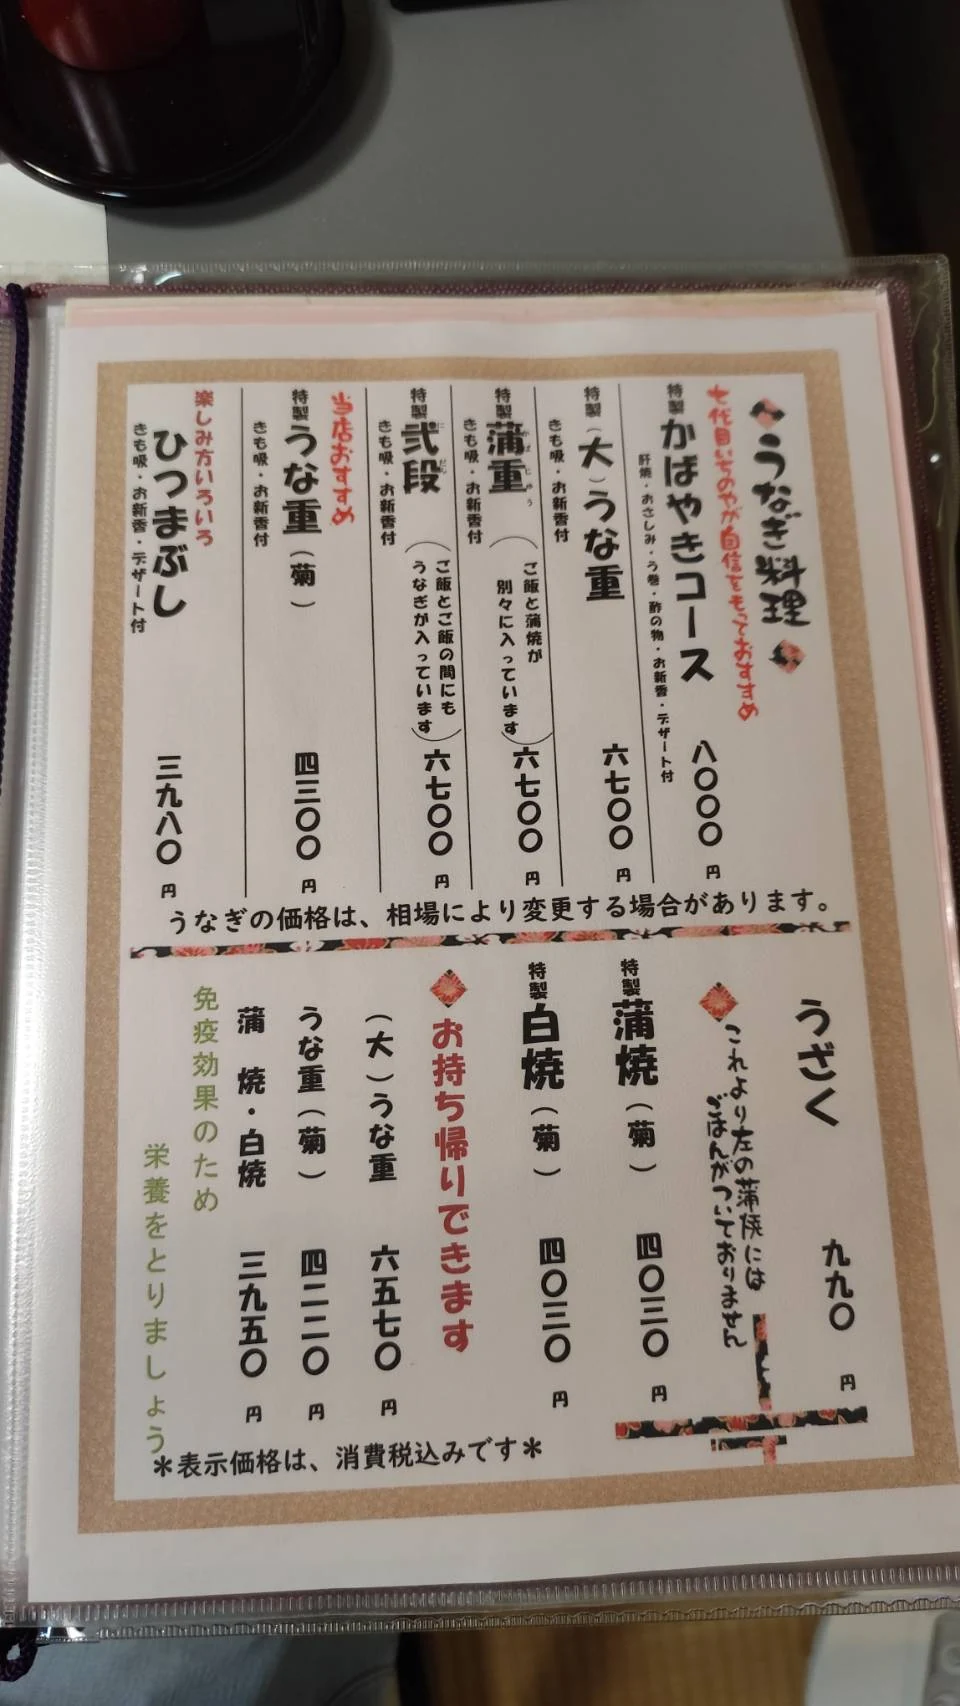 うなぎ料理
七代目いちのやが自信をもっておすすめ
特製 かばやきコース 八〇〇〇 円
肝焼・おさしみ・う巻・酢の物・お新香・デザート付
特製（大）うな重 六七〇〇 円
きも吸・お新香付
特製 蒲重 かばじゅう （ご飯と蒲焼が
別々に入っています） 六七〇〇 円
きも吸・お新香付
特製 弐段 にだん （ご飯とご飯の間にも
うなぎが入っています） 六七〇〇 円
きも吸・お新香付
当店おすすめ
特製 うな重（菊） 四三〇〇 円
きも吸・お新香付
楽しみ方いろいろ
ひつまぶし 三九八〇 円
きも吸・お新香・デザート付
うなぎの価格は、相場により変更する場合があります。
うざく 九九〇 円
これより左の蒲焼には
ごはんがついておりません
特製 蒲焼（菊） 四〇三〇 円
特製 白焼（菊） 四〇三〇 円
お持ち帰りできます
（大）うな重 六五七〇 円
うな重（菊） 四二二〇 円
蒲焼・白焼 三九五〇 円
免疫効果のため
栄養をとりましょう
＊表示価格は、消費税込みです＊